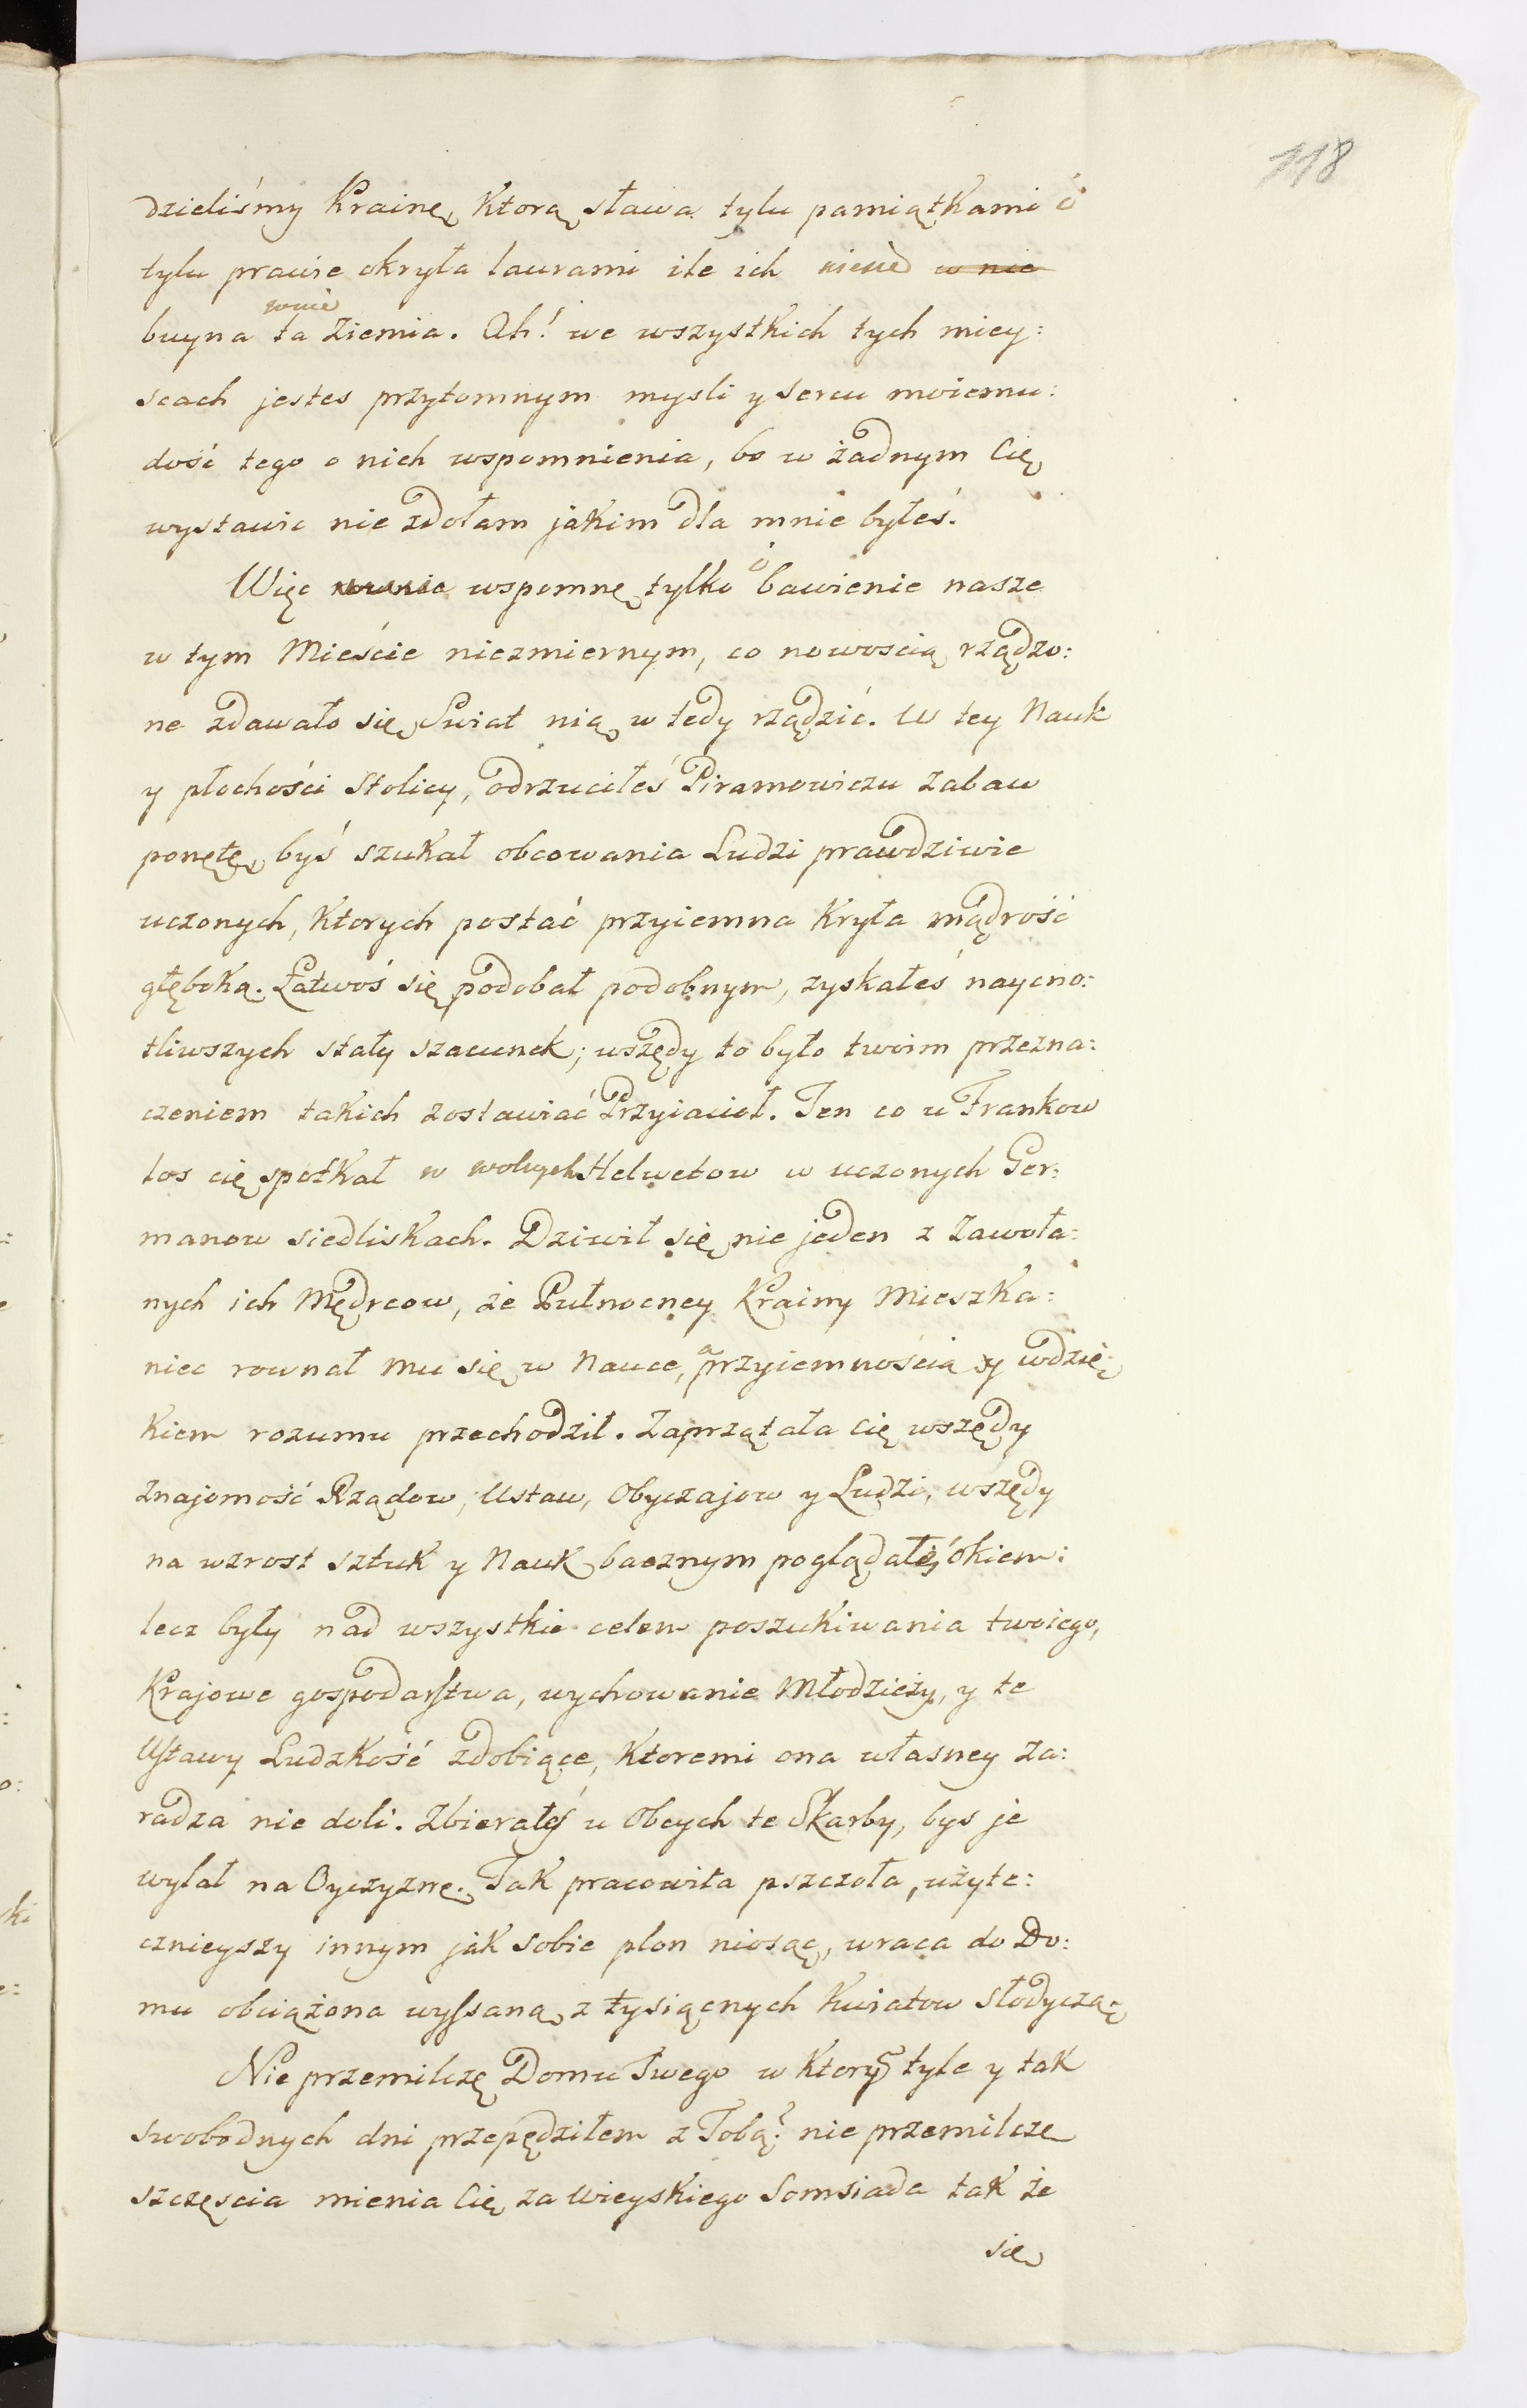 118
dzieliśmy Krainę, Ktorą sława tylu pamiątkami i
tylu prawie okryła laurami ile ich w nie
buyna ta Ziemia. Ah! we wszystkich tych miey:
scach jestes przytomnym mysli y sercu moiemu:
dość tego o nich wspomnienia, bo w żadnym Cię
wystawic nie zdołam jakim dla mnie byłeś.
Więc wspomnę tylko ó bawienie nasze
w tym Mieście niezmiernym, co nowością rządzo:
ne zdawało się Swiat nią w tedy rządzić. W tey Nauk
y płochości Stolicy, odrzuciłeś Piramowiczu Zabaw
ponętę, byś szukał obcowania Ludzi prawdziwie
uczonych, Ktorych postać przyiemna Kryła mądrość
głęboką. Łatwoś się podobał podobnym, zyskałeś naycno:
tliwszych stały szacunek; wszędy to było twoim przezna:
czeniem takich zostawiać Przyiacioł. Ten co u Frankow
los cię spotkał w wolnych Helwetow w uczonych Ger:
manow siedliskach. Dziwił się nie jeden z Zawoła:
nych ich Mędrcow, że Pułnocney Krainy Mieszka:
niec rownał mu się w Nauce, a przyiemnością y wdzię:
kiem rozumu przechodził. Zaprzątała Cię wszędy
Znajomość Rządow, Ustaw, Obyczajow y Ludzi, wszędy
na wzrost sztuk y Nauk bacznym poglądałeś okiem:
lecz były nad wszystkie celem poszukiwania twoiego,
Krajowe gospodarstwa, wychowanie Młodzieży, y te
Ustawy Ludzkość zdobiące, Ktoremi ona własney za:
radza nie doli. Zbierałeś u Obcych te Skarby, bys je
wylał na Oyczyznę. Tak pracowita pszczoła, użyte:
cznieyszy innym jak sobie plon niosąc, wraca do Do:
mu obciążona wyssaną z tysiącnych Kwiatow słodyczą:
Nie przemilczę Domu Twego w Ktorym tyle y tak
swobodnych dni przepędziłem z Tobą? nie przemilczę
szczęscia mienia Cię za Wieyskiego Somsiada tak że
się